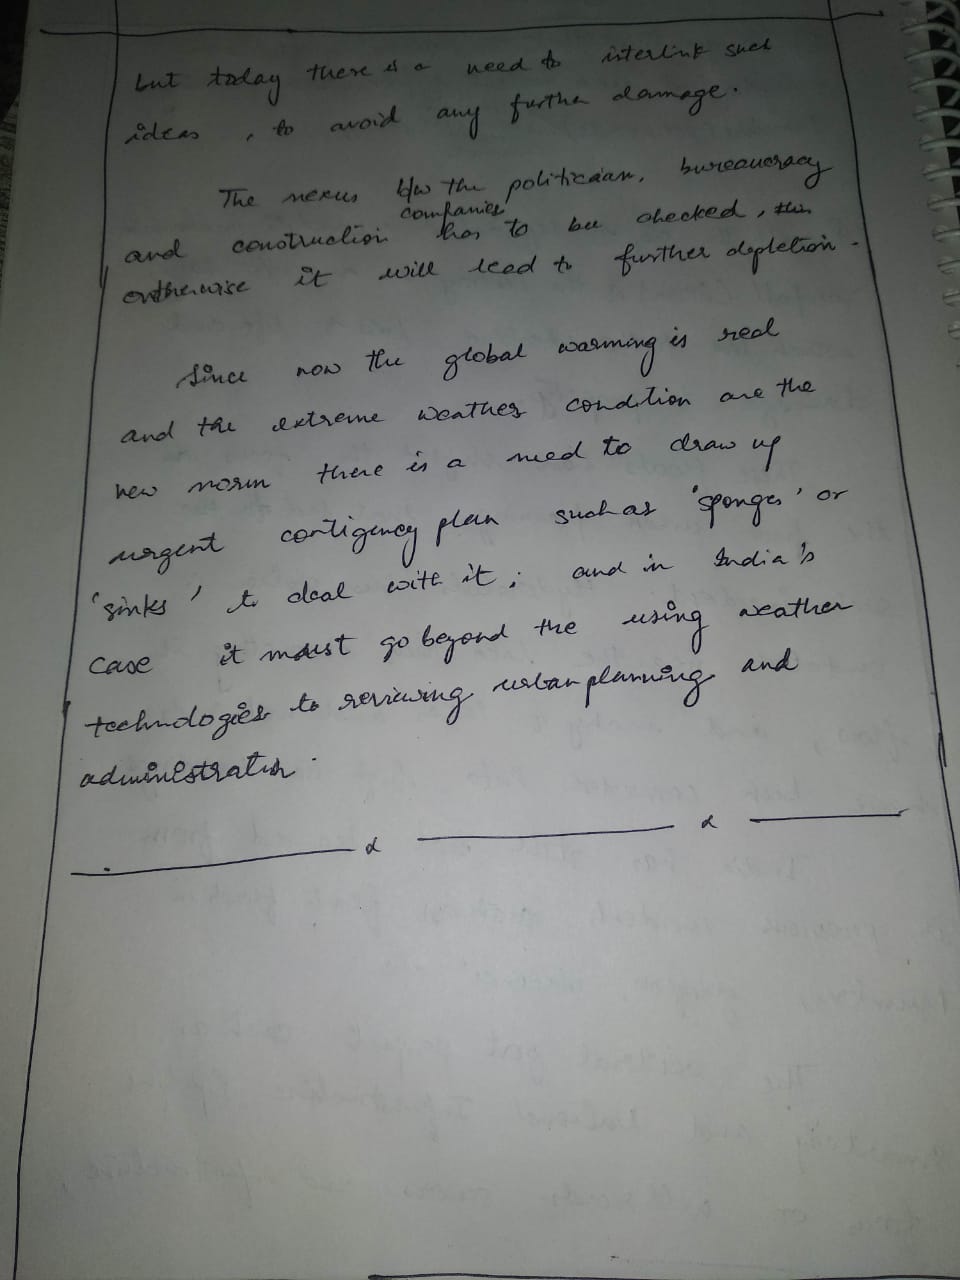 but today there is a need to interlink such
ideas , to avoid any further damage.
The nexus b/w the politician, bureaucracy
and construction companies has to be checked, this
otherwise it will lead to further depletion.
Since now the global warming is real
and the extreme weather condition are the
new norm there is a need to draw up
urgent contigency plan such as 'sponges' or
'sinks' to deal with it; and in India's
case it must go beyond the using weather
technologies to reviewing urban planning and
administration.